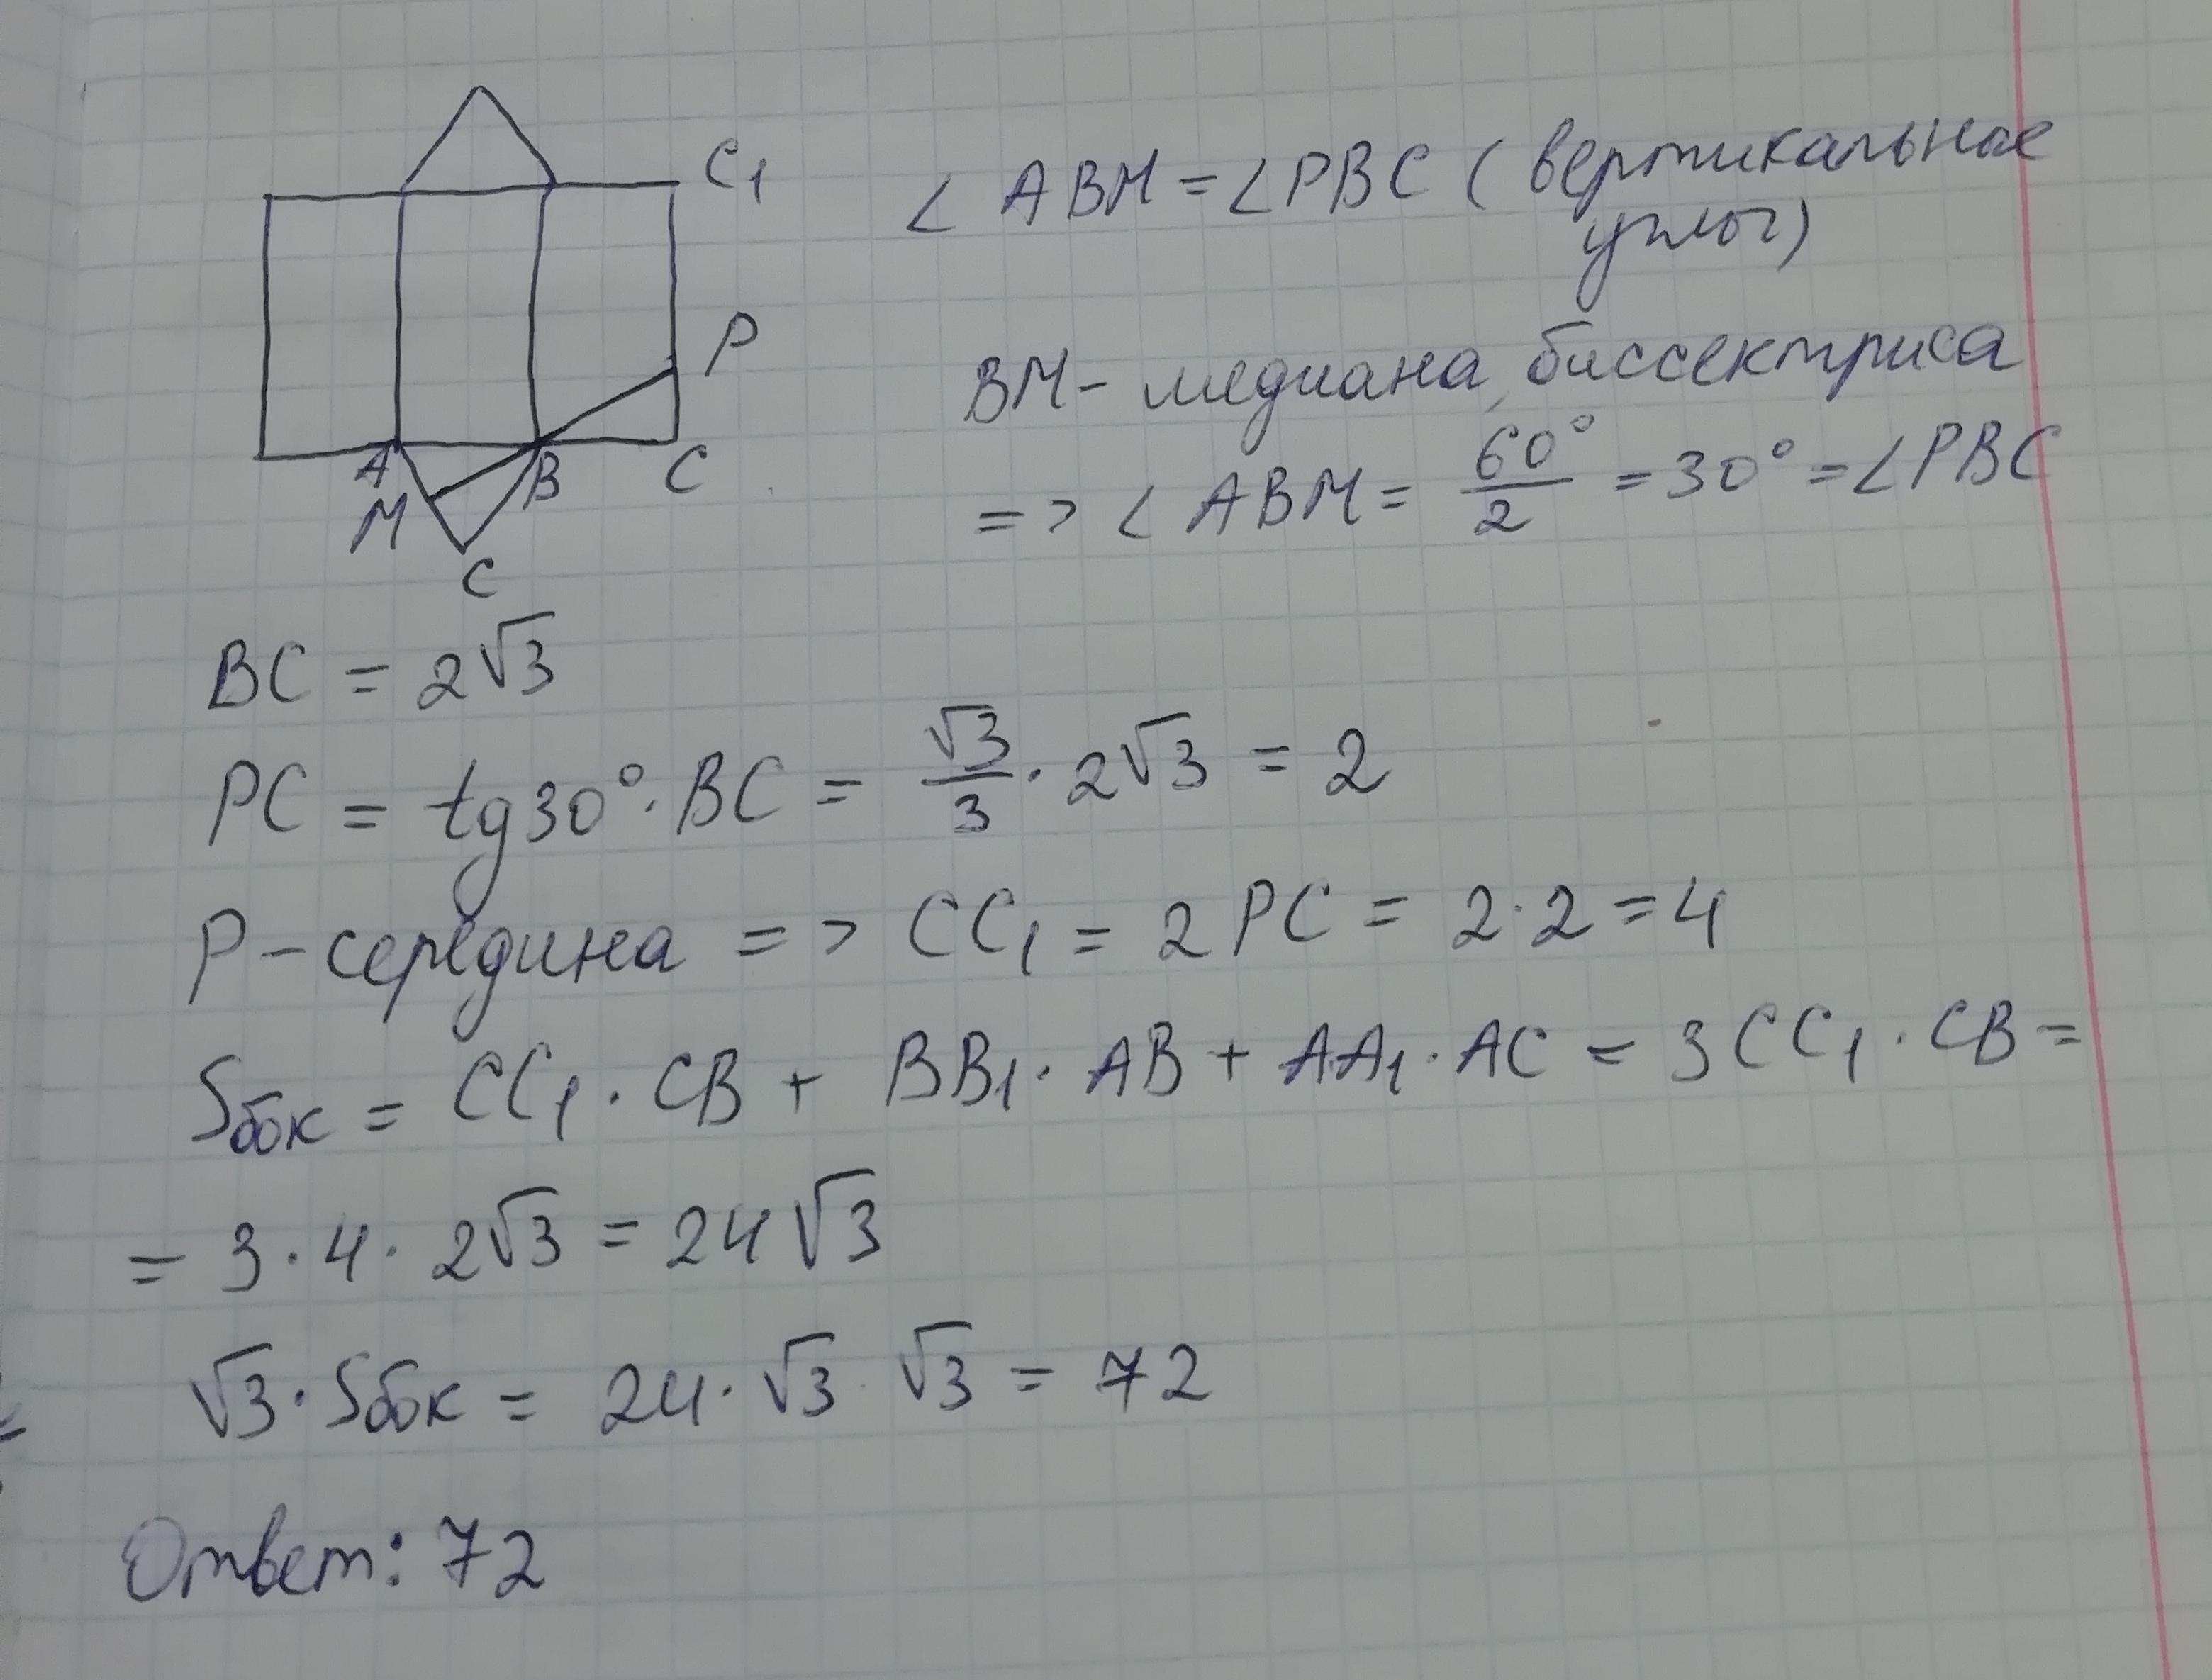 C₁
P
A
B
C
M
C
∠ ABM = ∠PBC (вертикальные
углы)
BM - медиана, биссектриса
=> ∠ ABM = 60°/2 = 30° = ∠PBC
BC = 2√3
PC = tg30° · BC = √3/3 · 2√3 = 2
P - середина => CC₁ = 2PC = 2·2 = 4
Sбок = CC₁ · CB + BB₁ · AB + AA₁ · AC = 3CC₁ · CB =
= 3 · 4 · 2√3 = 24√3
√3 · Sбок = 24 · √3 · √3 = 72
Ответ: 72